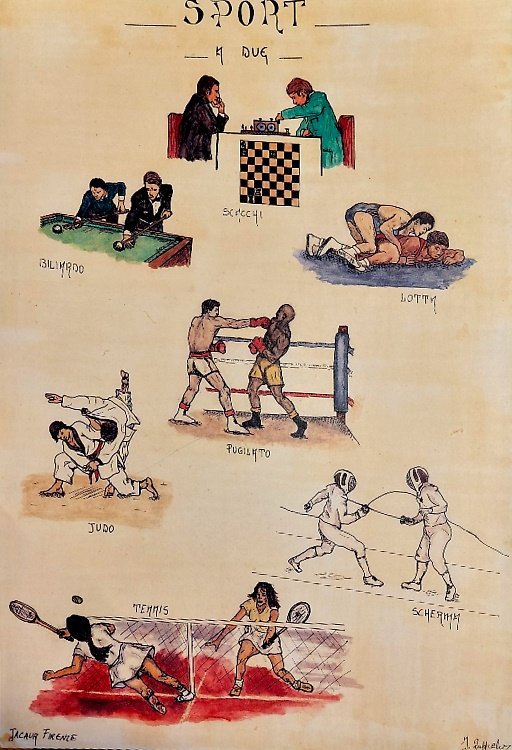 SPORT
A DUE
SCACCHI
BILIARDO
LOTTA
PUGILATO
JUDO
SCHERMA
TENNIS
JACAUR FIRENZE